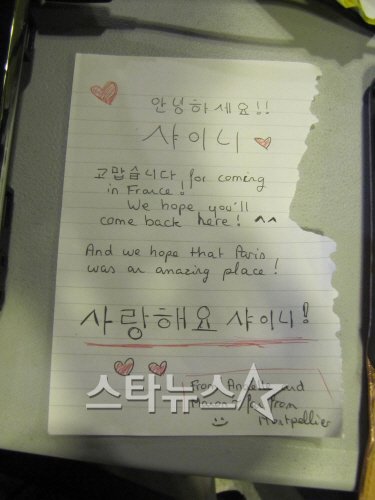 안녕하세요!!
샤이니
고맙습니다 for coming
in France!
We hope you'll
come back here! ^^
And we hope that Paris
was an amazing place!
사랑해요 샤이니!
스타뉴스
From and
from
Montpellier